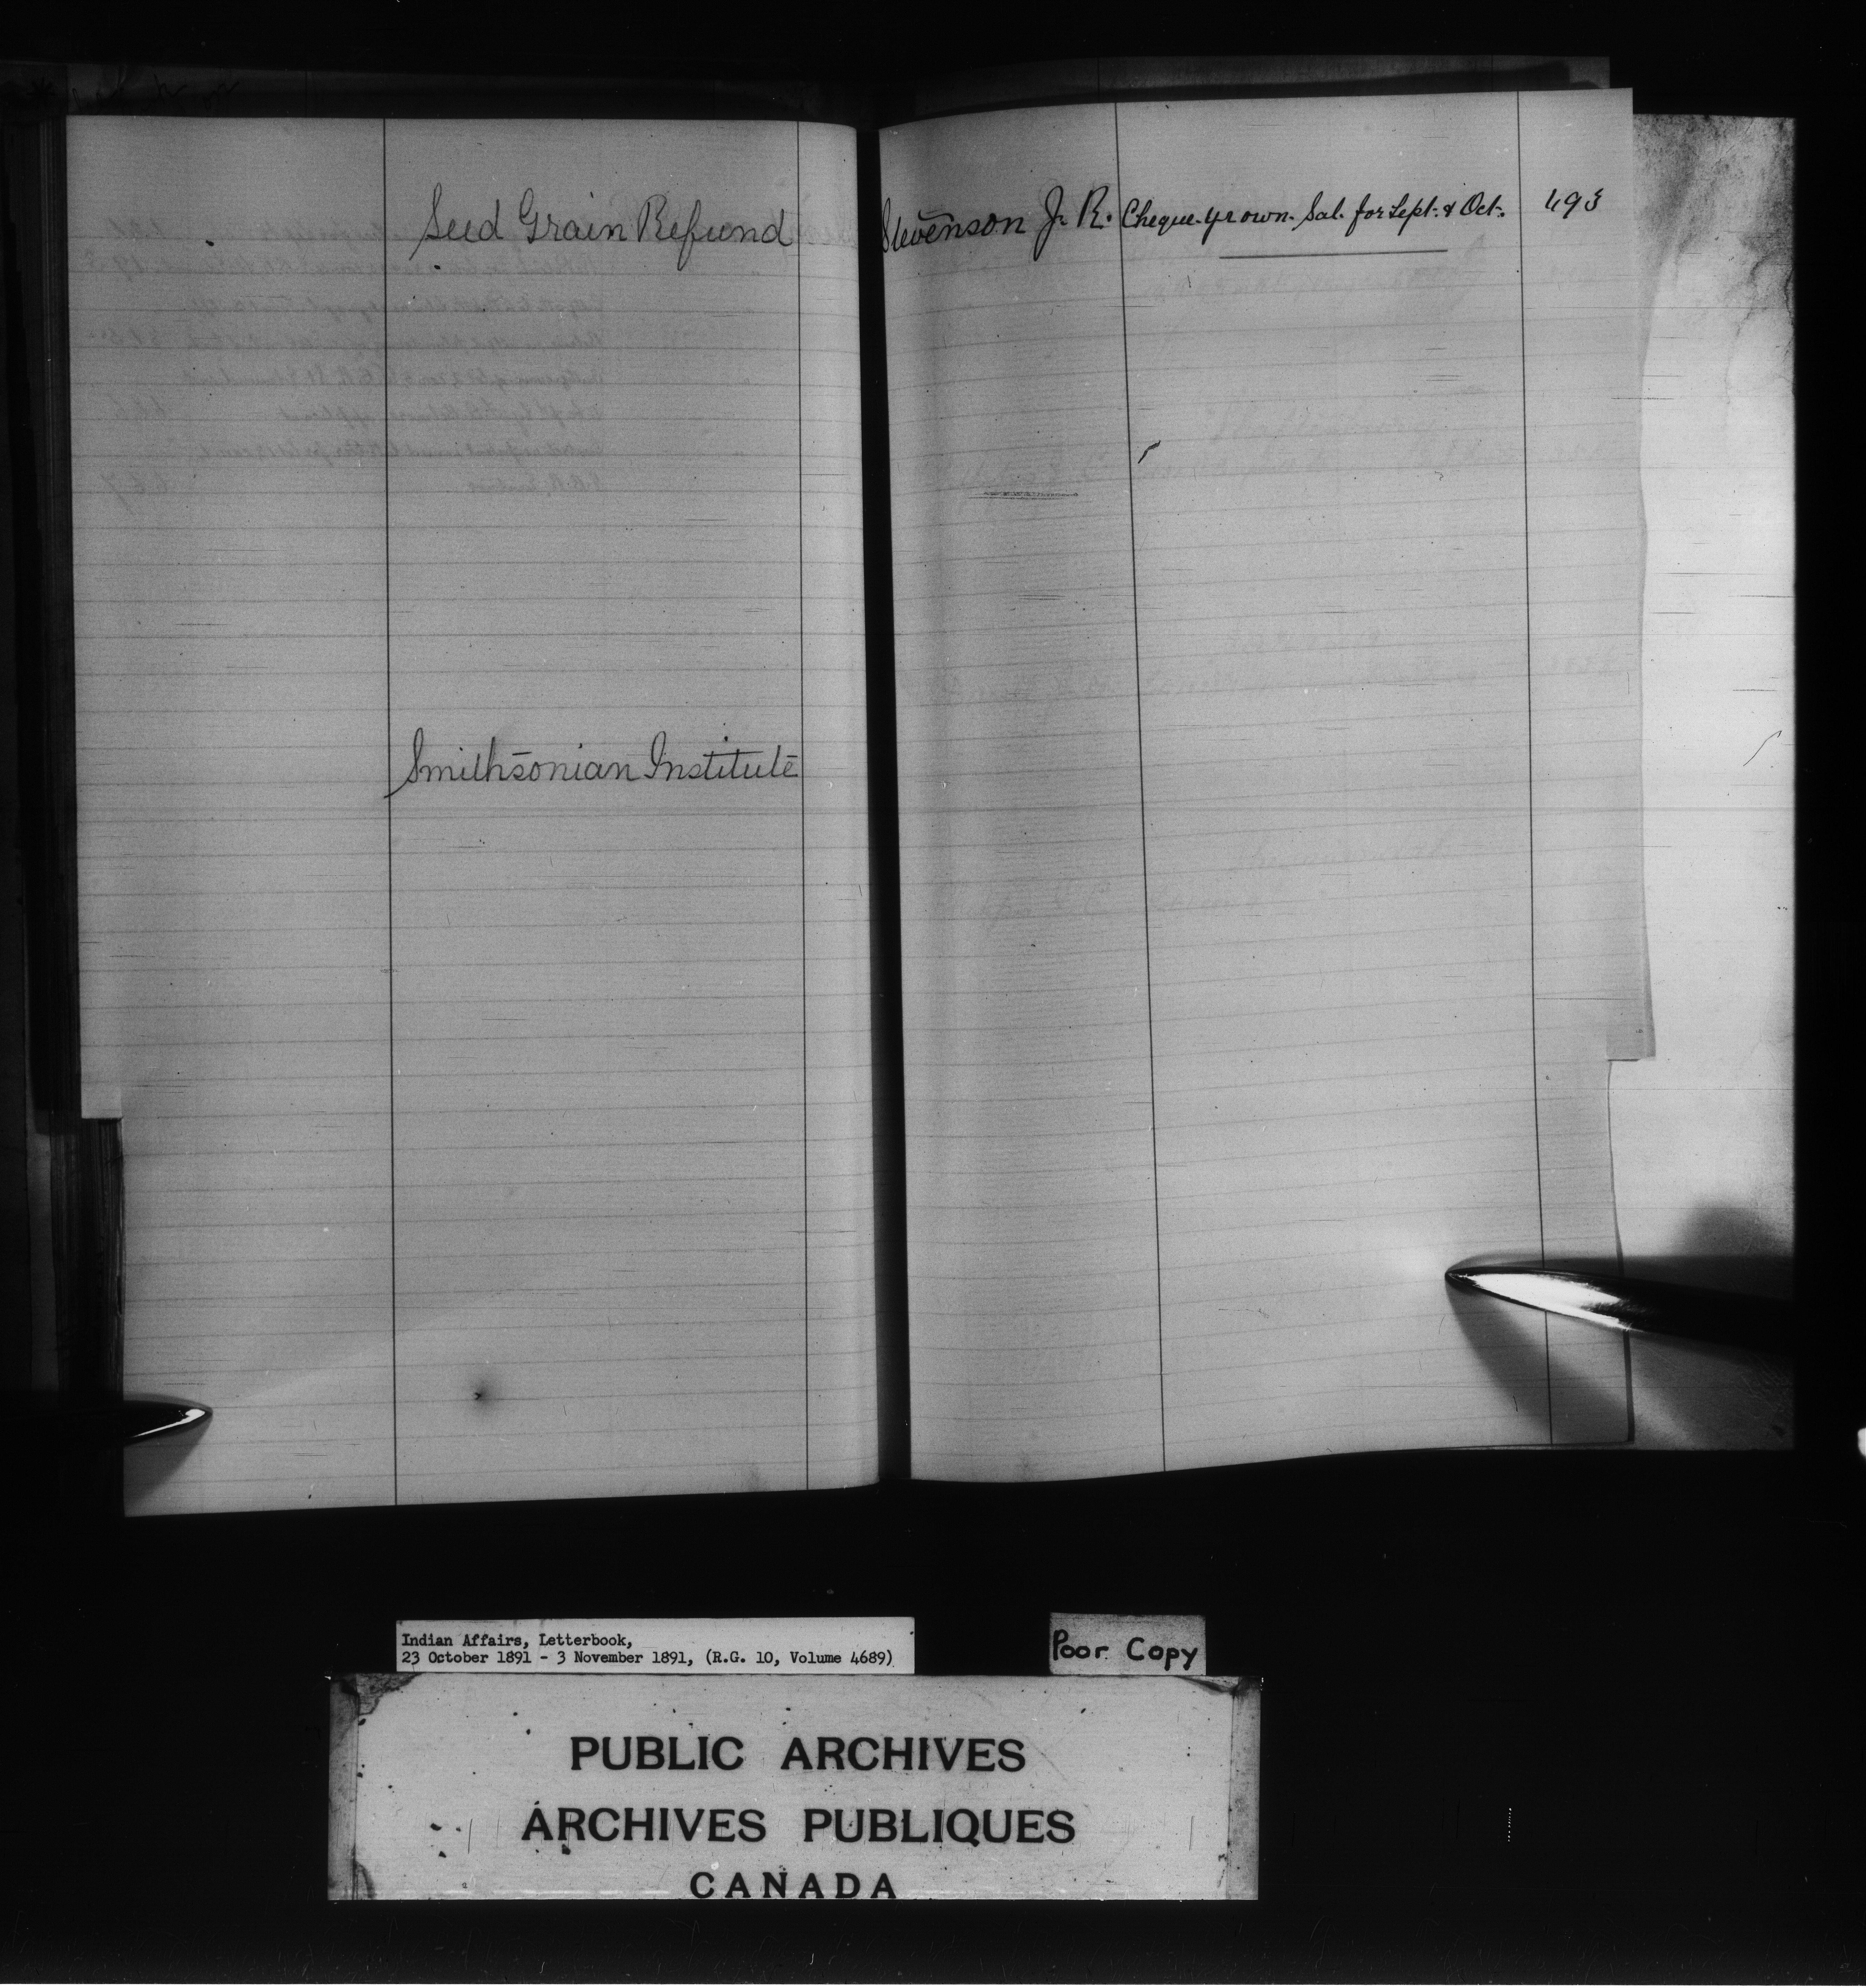 Seed Grain Refund
Smithsonian Institute
Stevenson J. R. Cheque. yr own. Sal. for Sept. & Oct. 493
Indian Affairs, Letterbook,
23 October 1891 - 3 November 1891, (R.G. 10, Volume 4689)
Poor Copy
PUBLIC ARCHIVES
ARCHIVES PUBLIQUES
CANADA